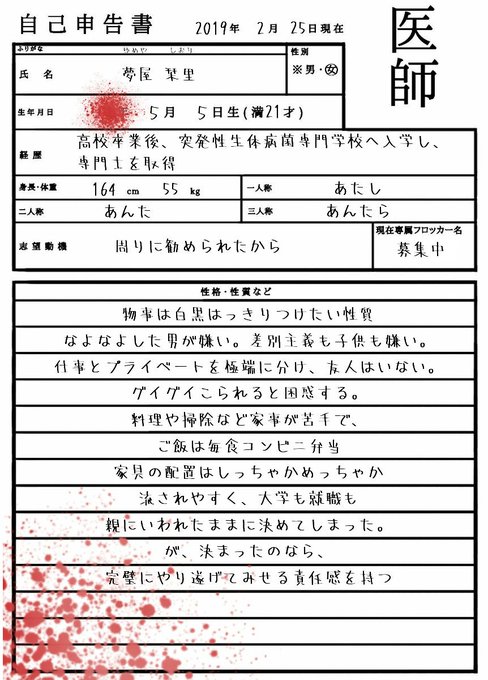 自己申告書 2019年 2月 25日現在
医師
ふりがな ゆめや しおり
氏名 夢屋 栞里
性別
※男・女
生年月日 5月 5日生(満21才)
経歴 高校卒業後、突発性生体病菌専門学校へ入学し、
専門士を取得
身長・体重 164 cm 55 kg 一人称 あたし
二人称 あんた 三人称 あんたら
志望動機 周りに勧められたから
現在専属フロッカー名
募集中
性格・性質など
物事は白黒はっきりつけたい性質
なよなよした男が嫌い。差別主義も子供も嫌い。
仕事とプライベートを極端に分け、友人はいない。
グイグイこられると困惑する。
料理や掃除など家事が苦手で、
ご飯は毎食コンビニ弁当
家具の配置はしっちゃかめっちゃか
流されやすく、大学も就職も
親にいわれたままに決めてしまった。
が、決まったのなら、
完璧にやり遂げてみせる責任感を持つ